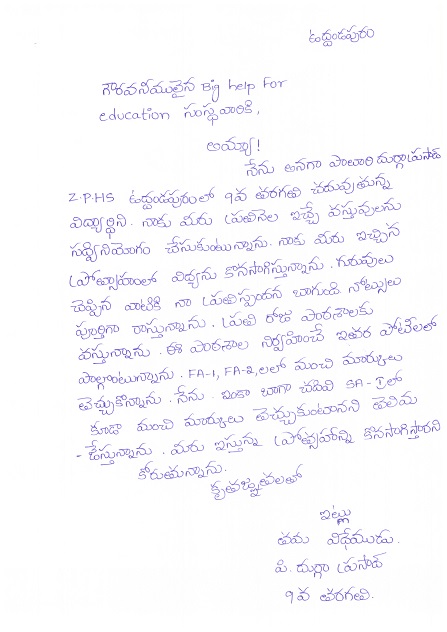 ఉద్దండపురం
గౌరవనీయులైన Big help For
education సంస్థవారికి,
అయ్యా!
నేను అనగా పోలారి దుర్గాప్రసాద్
Z.P.HS ఉద్దండపురంలో 9వ తరగతి చదువుతున్న
విద్యార్థిని. నాకు మీరు ప్రతినెల ఇచ్చే వస్తువులను
సద్వినియోగం చేసుకుంటున్నాను. నాకు మీరు ఇచ్చిన
ప్రోత్సాహంలో విద్యను కొనసాగిస్తున్నాను. గురువులు
చెప్పిన వాటికి నా ప్రతిస్పందన బాగుండి నోట్సులు
పూర్తిగా రాస్తున్నాను. ప్రతి రోజు పాఠశాలకు
వస్తున్నాను. ఈ పాఠశాల నిర్వహించే ఇతర పోటీలలో
పాల్గొంటున్నాను. FA-1, FA-2,లలో మంచి మార్కులు
తెచ్చుకొన్నాను. నేను. ఇంకా బాగా చదివి SA-I లో
కూడా మంచి మార్కులు తెచ్చుకుంటానని తెలియ
- చేస్తున్నాను. మీరు ఇస్తున్న ప్రోత్సాహాన్ని కొనసాగిస్తారని
కోరుతున్నాను.
కృతజ్ఞతలతో
ఇట్లు
తమ విధేయుడు.
పి. దుర్గా ప్రసాద్
9వ తరగతి.